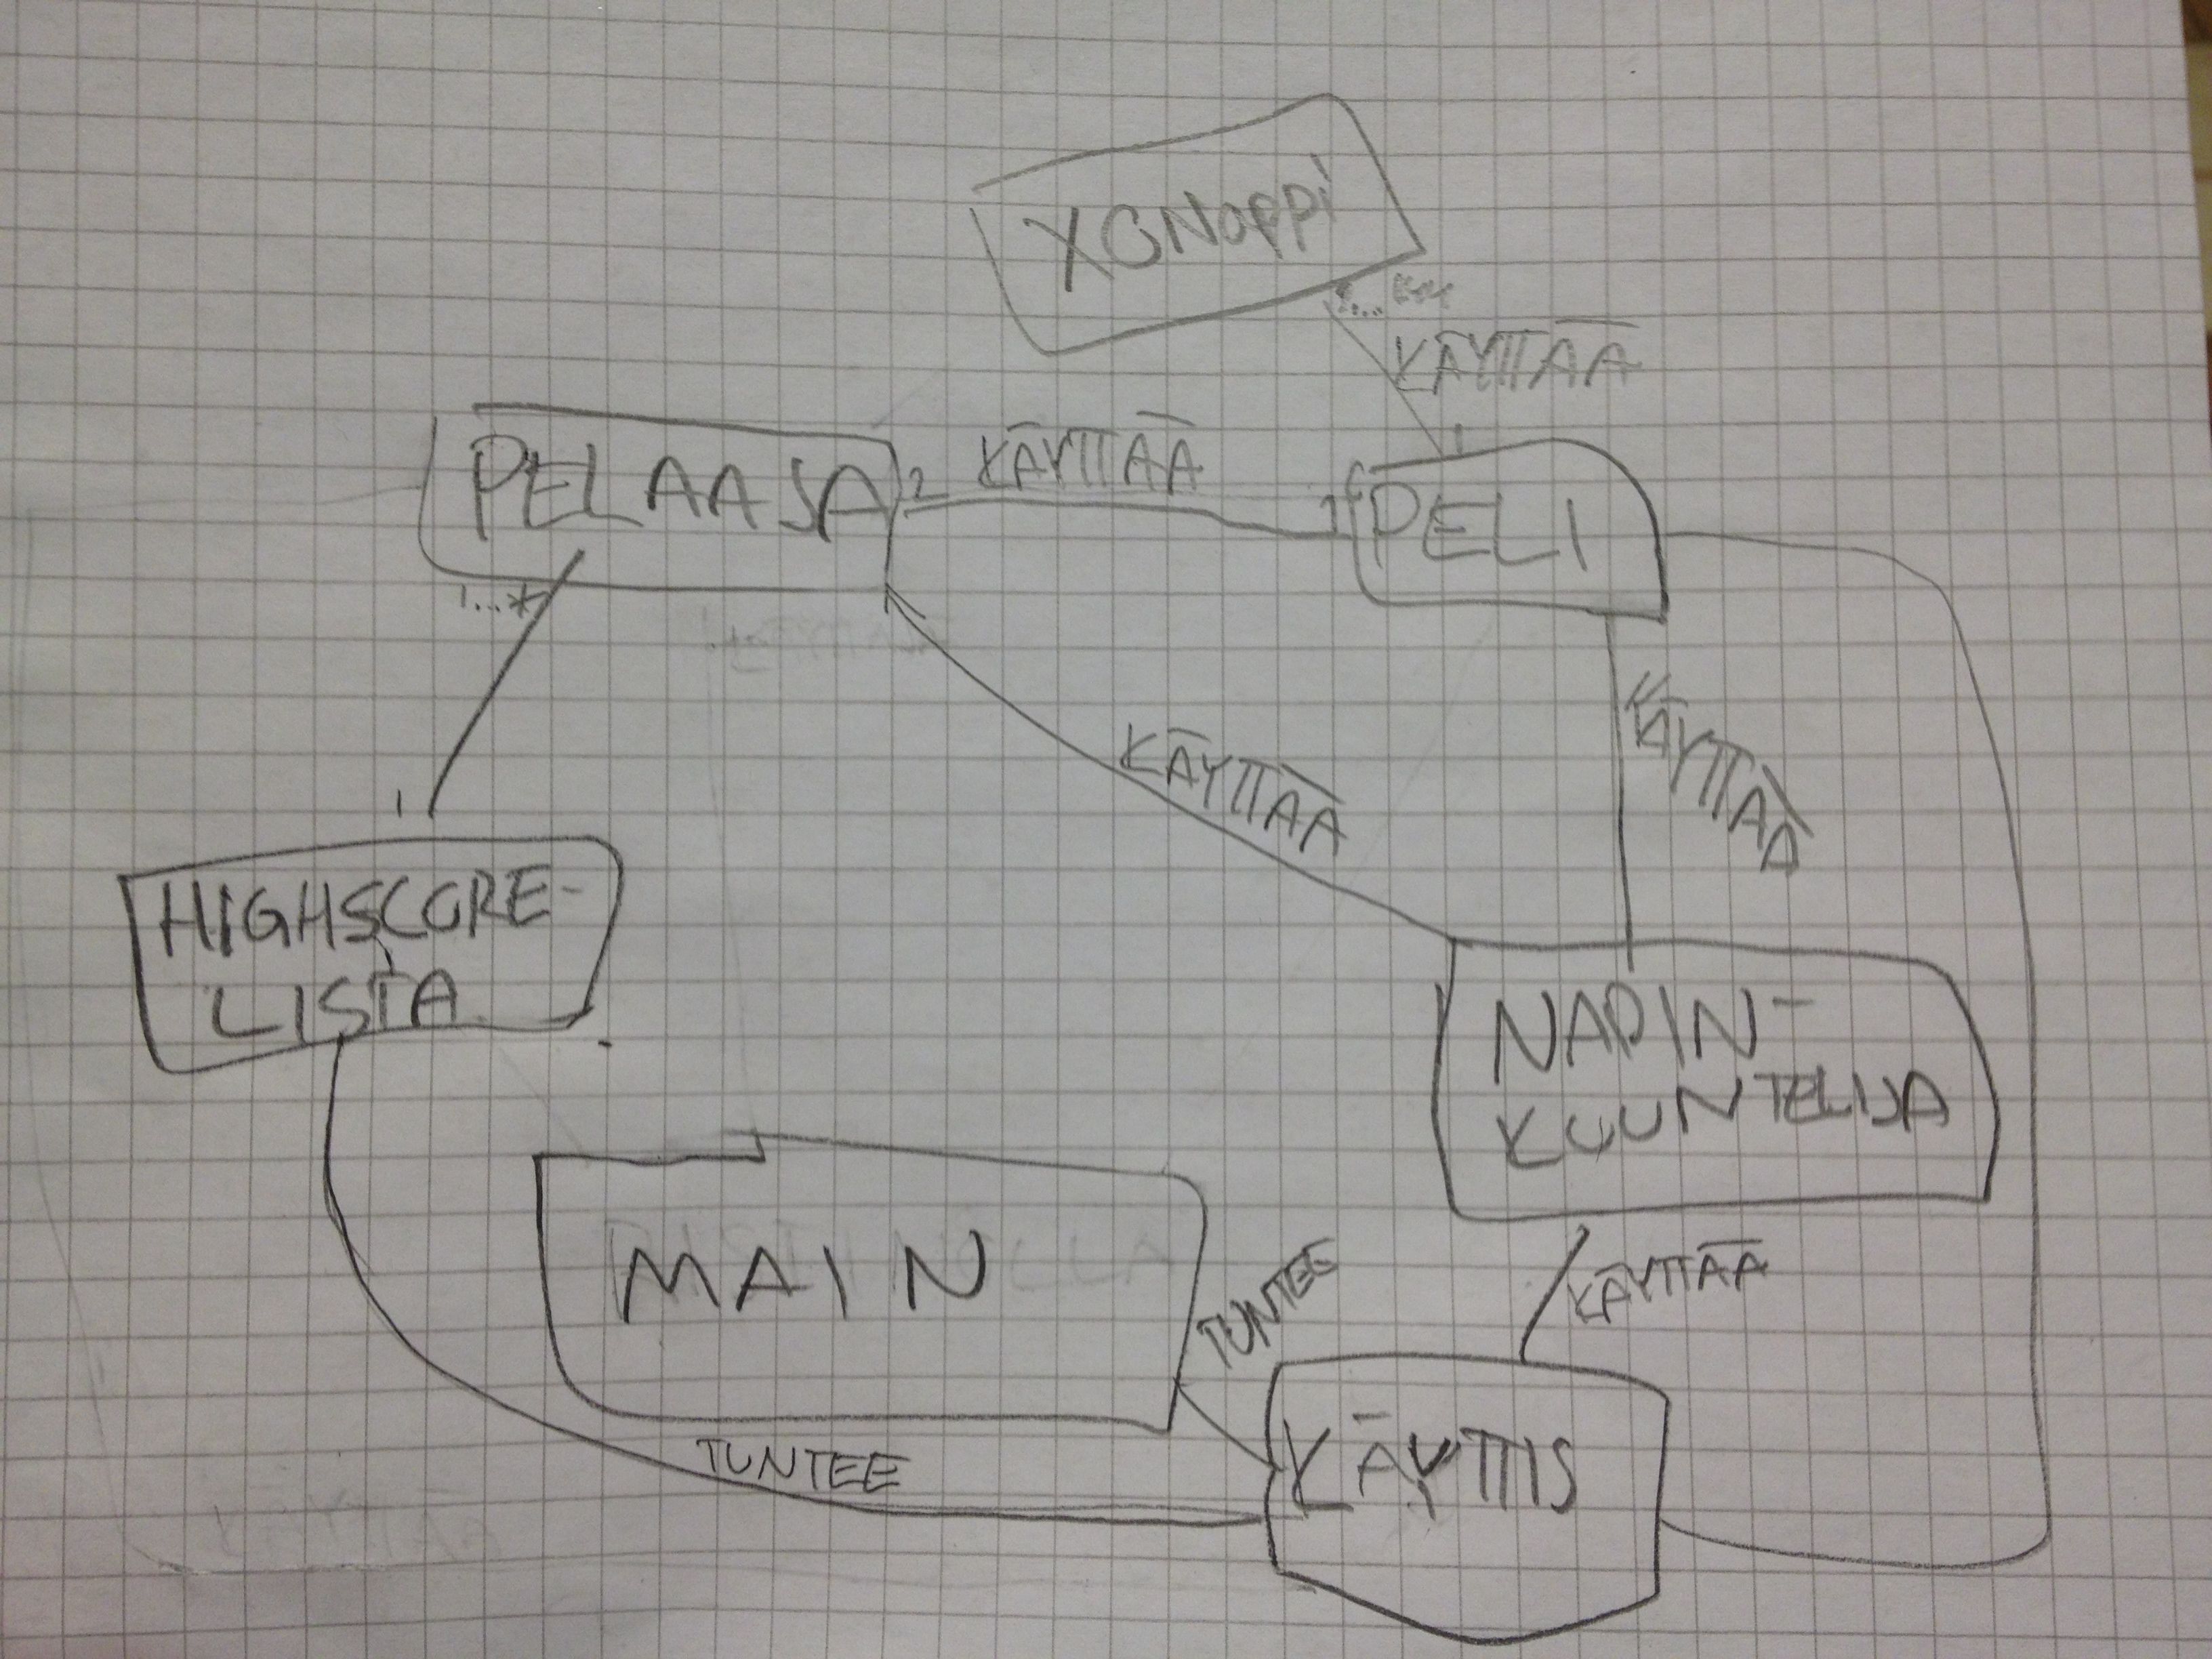 XONappi
KÄYTTÄÄ
1
PELAAJA
2
KÄYTTÄÄ
1
PELI
1...*
KÄYTTÄÄ
KÄYTTÄÄ
1
HIGHSCORE-
LISTA
NAPIN-
KUUNTELIJA
MAIN
TUNTEE
KÄYTTÄÄ
KÄYTTIS
TUNTEE